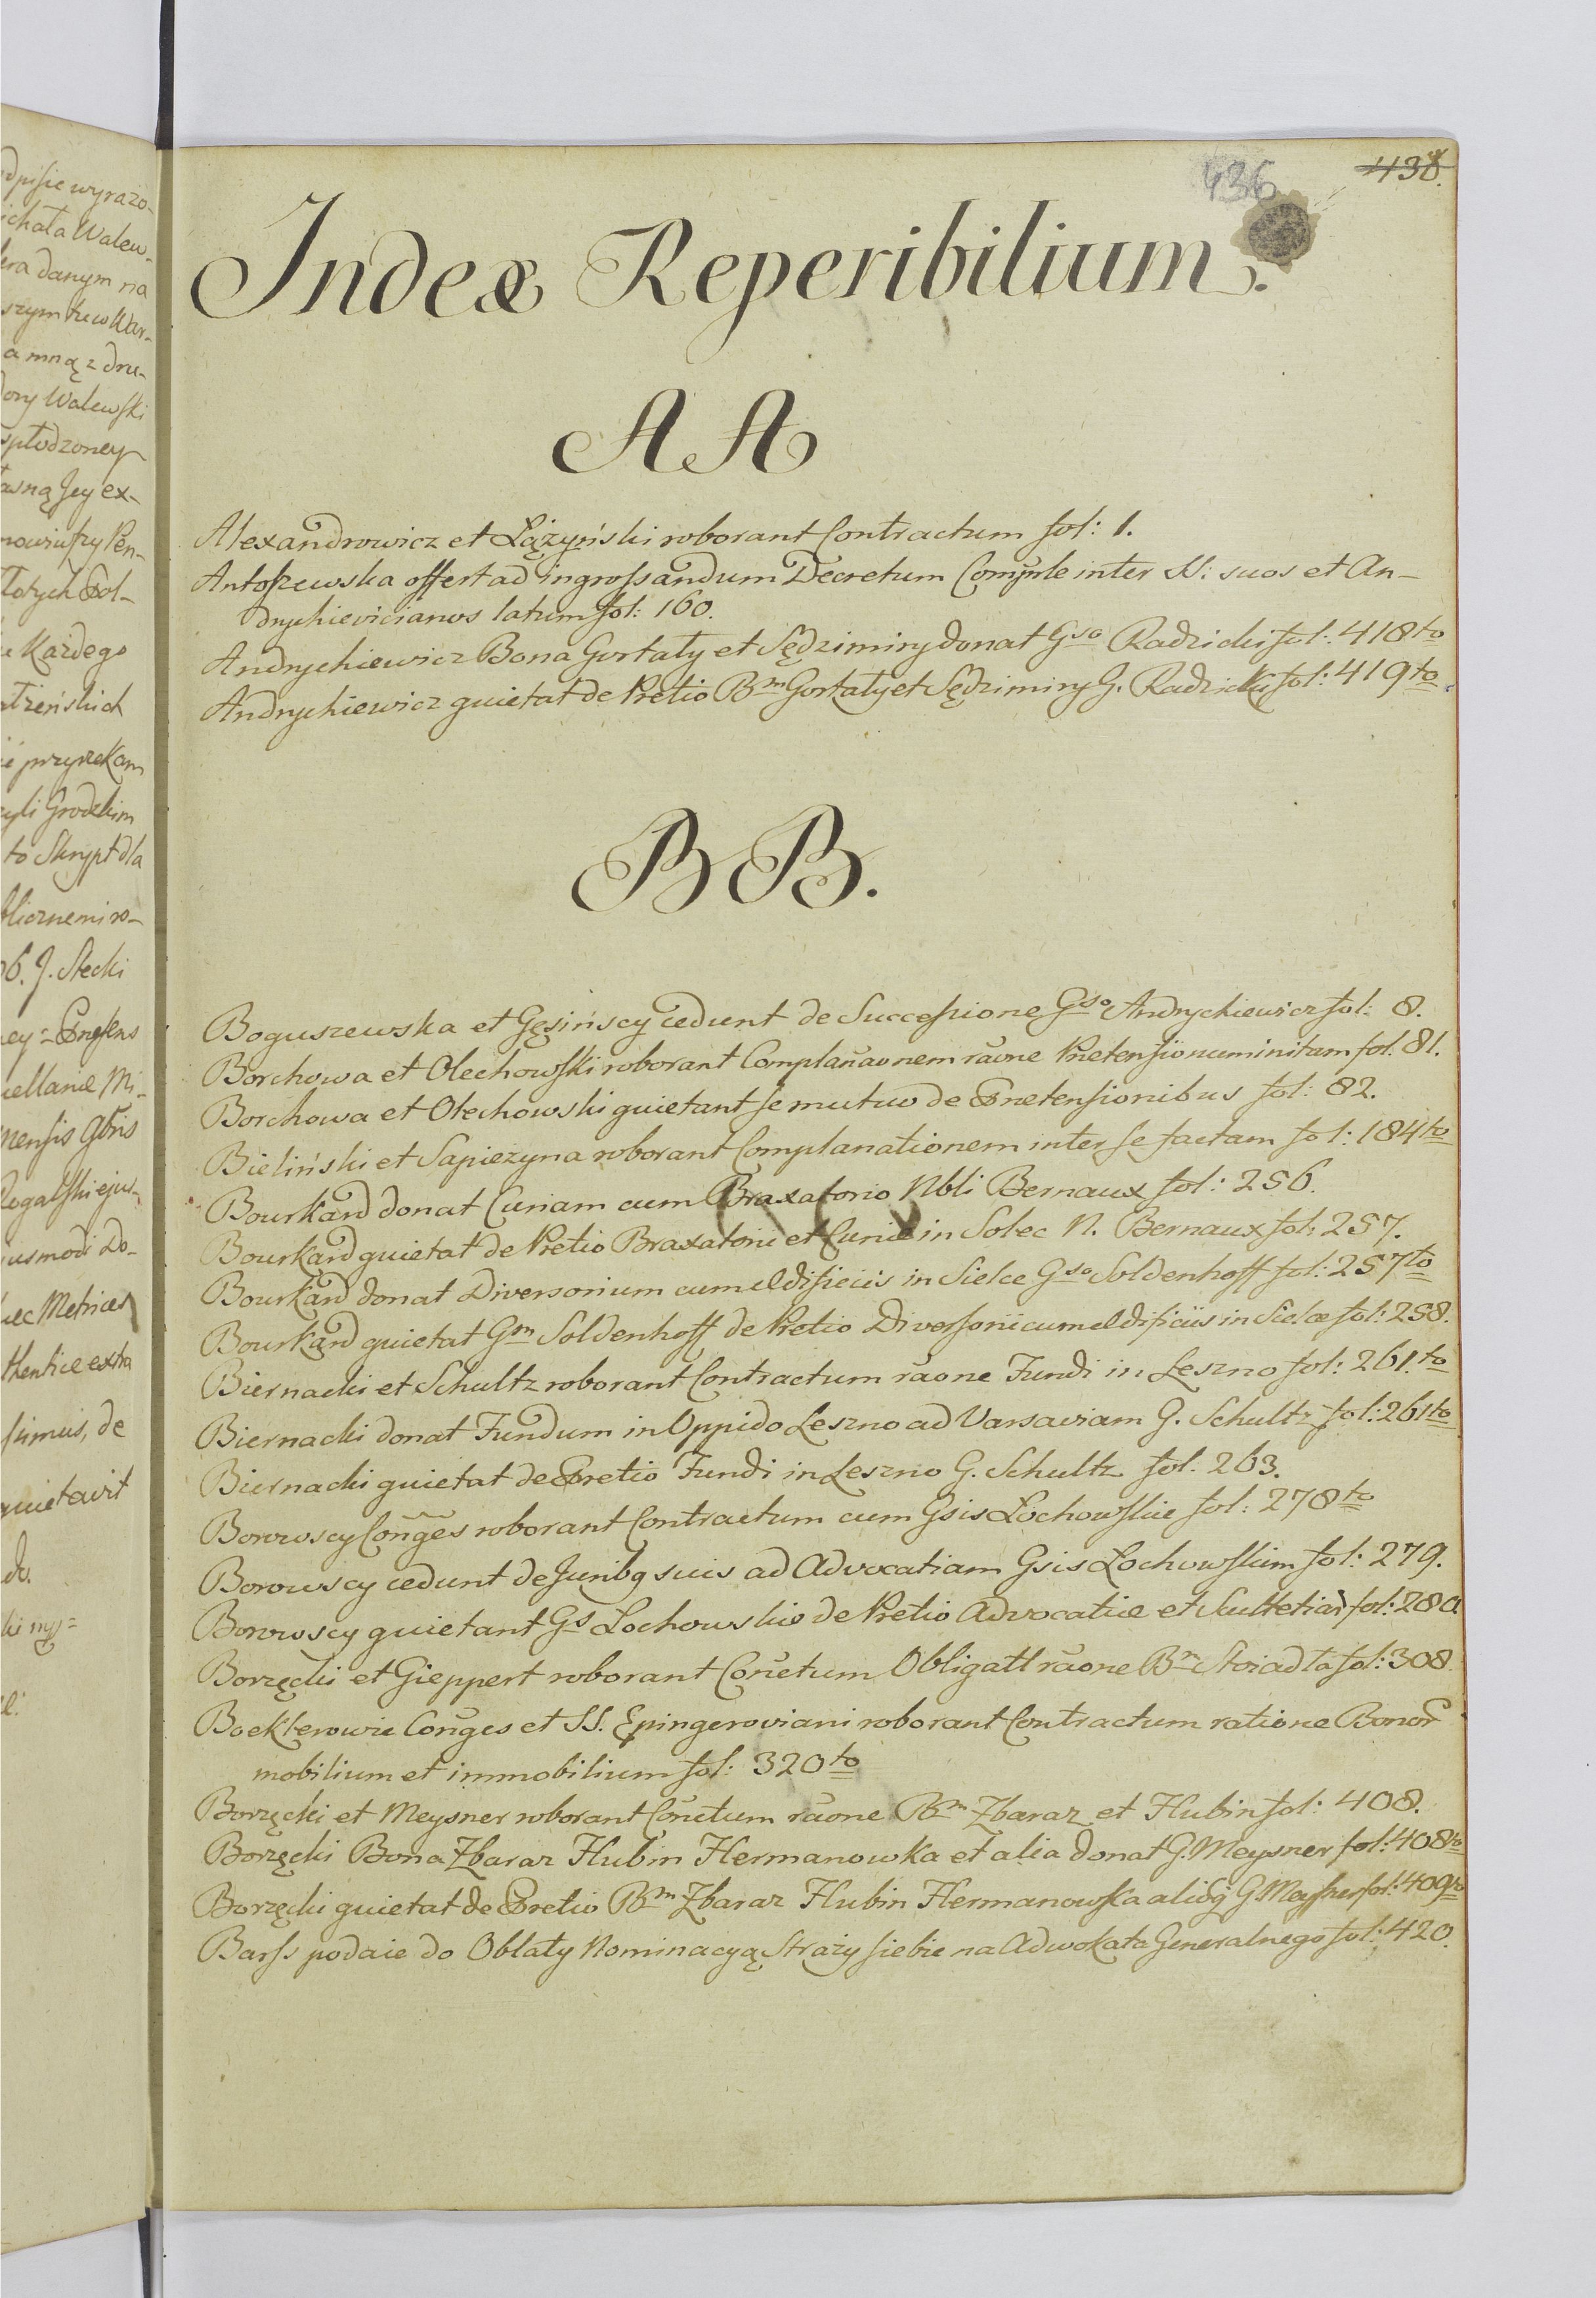 dpisie wyrazo-
ichała Walew-
era danym na
szym tu w War-
a mną z dru-
dory Walewski
spłodzoney
awną Jey ex-
Złotych Pol-
u Każdego
ié przyrzekam
to Skrypt dla
blicznemi ro-
96. J. Stecki
cellaniæ Mi-
mensis Gbris
Rogalski ejus-
usmodi Do-
hæc Metrices
thentice extra
simus, de
quietavit
do.
436 438.
Index Reperibilium.
AA
Alexandrowicz et Łążyński roborant Contractum fol: 1.
Antoszewska offert ad ingrossandum Decretum Compnle inter SS: suos et An-
drychievicianos latum fol: 160.
Andrychiewicz Bona Gortaty et Sędzimiry donat Gso Radzicki fol: 418to
Andrychiewicz quietat de Pretio Bm Gortaty et Sędzimiry G. Radzicki fol: 419to
BB.
Boguszewska et Gęsińscy cedunt de Successione Gso Andrychiewicz fol: 8.
Borchowa et Olechowski roborant Complanaonem raone Prætensionum initam fol. 81.
Borchowa et Olechowski quietant se mutuo de Prætensionibus fol: 82.
Bieliński et Sapiezyna roborant Complanationem inter se factam fol: 184to
Bourkard donat Curiam cum Braxatorio Nbli Bernaux fol: 256.
Bourkard quietat de Pretio Braxatorii et Curiæ in Solec N. Bernaux fol: 257.
Bourkard donat Diversorium cum Ædificiis in Sielce Gso Soldenhoff fol: 257to
Bourkard quietat Gm Soldenhoff de Pretio Diversorii cum Ædificiis in Sielce fol: 258.
Biernacki et Schultz roborant Contractum raone Fundi in Leszno fol: 261.to
Biernacki donat Fundum in Oppido Leszno ad Varsaviam G. Schultz fol: 261to
Biernacki quietat de Pretio Fundi in Leszno G. Schultz fol. 263.
Borowscy Conges roborant Contractum cum Gsis Łochowskie fol: 278to
Borowscy cedunt de Juribq suis ad Advocatiam Gsis Łochowskim fol: 279.
Borowscy quietant Gs Lochowskie de Pretio Advocatiæ et Scultetiæ fol: 280
Borzęcki et Gieppert roborant Conctum Obligatt raone Bm Stoiadła fol: 308.
Boeklerowie Conges et SS. Epingeroviani roborant Contractum ratione Bonor
mobilium et immobilium fol: 320to
Borzęcki et Meysner roborant Conctum raone Bm Zbaraz et Hubin fol: 408.
Borzęcki Bona Zbaraz Hubin Hermanowka et alia donat G. Meysner fol: 408to
Borzęcki quietat de Pretio Bm Zbaraz Hubin Hermanowka aliisq G. Meysner fol: 409to
Barss podaie do Oblaty Nominacyą Straży siebie na Adwokata Generalnego fol: 420.